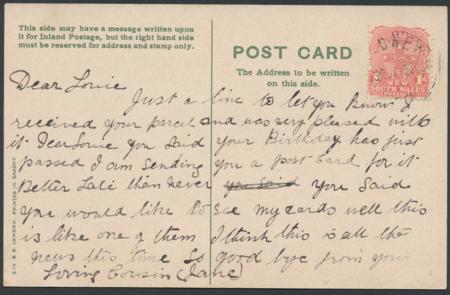 This side may have a message written upon
it for Inland Postage, but the right hand side
must be reserved for address and stamp only.
POST CARD
The Address to be written
on this side.
NEW
SOUTH WALES
POSTAGE
Dear Louie
Just a line to let you know I
received your parcel and was very pleased with
it Dear Louie you said your Birthday has just
passed I am sending you a Post Card for it
Better Late than never you said You said
you would like to see my cards well this
is like one of them I think this is all the
news this time So good bye from your
Loving Cousin (Jane)
PRINTED IN SAXONY